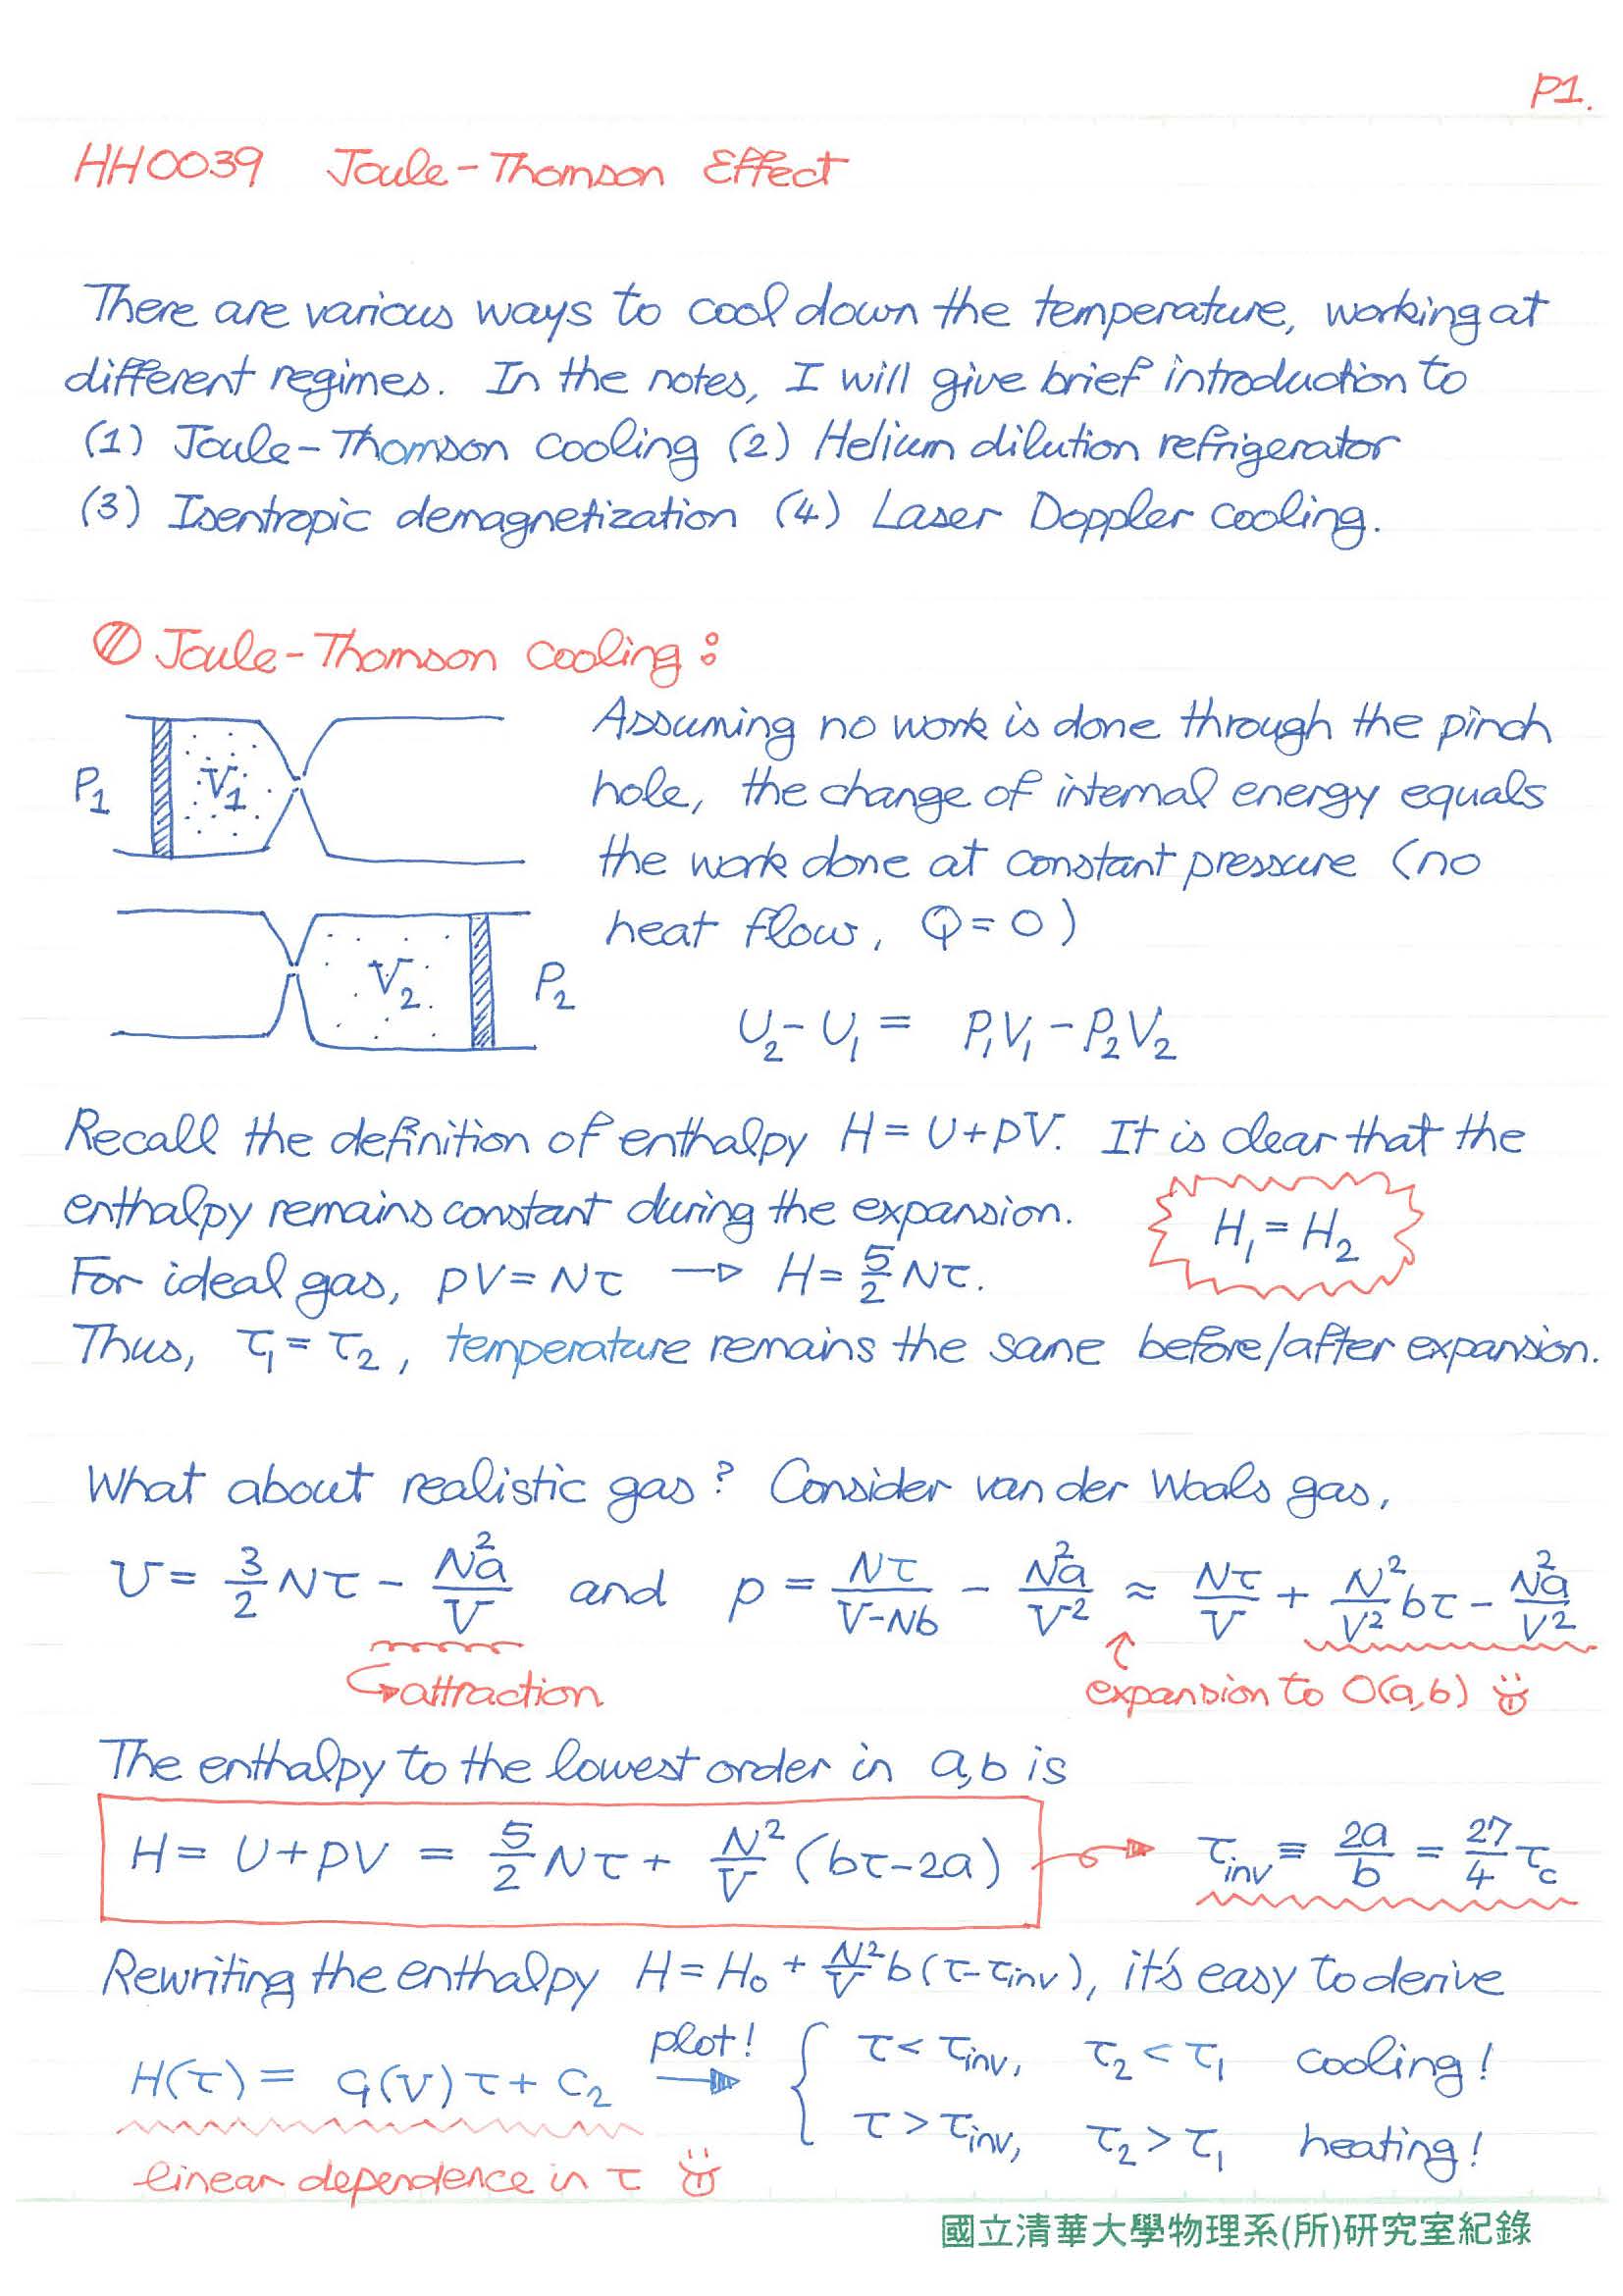 P1.
HH0039 Joule-Thomson Effect
There are various ways to cool down the temperature, working at
different regimes. In the notes, I will give brief introduction to
(1) Joule-Thomson cooling (2) Helium dilution refrigerator
(3) Isentropic demagnetization (4) Laser Doppler cooling.
Joule-Thomson cooling:
P₁ V₁
V₂ P₂
Assuming no work is done through the pinch
hole, the change of internal energy equals
the work done at constant pressure (no
heat flow, Q=0)
U₂-U₁ = P₁V₁-P₂V₂
Recall the definition of enthalpy H=U+pV. It is clear that the
enthalpy remains constant during the expansion.
H₁=H₂
For ideal gas, pV=Nτ → H=5/2 Nτ.
Thus, τ₁=τ₂, temperature remains the same before/after expansion.
What about realistic gas? Consider van der Waals gas,
U = 3/2 Nτ - N²a/V and p = Nτ/(V-Nb) - N²a/V² ≈ Nτ/V + N²/V² bτ - N²a/V²
attraction
↑ expansion to O(a,b)
The enthalpy to the lowest order in a,b is
H = U+pV = 5/2 Nτ + N²/V (bτ-2a) → τinv ≡ 2a/b = 27/4 τc
Rewriting the enthalpy H=H₀+N²/V b(τ-τinv), it's easy to derive
H(τ) = G(V)τ+C₂ plot! → { τ<τinv, τ₂<τ₁ cooling!
τ>τinv, τ₂>τ₁ heating!
linear dependence in τ
國立清華大學物理系(所)研究室紀錄